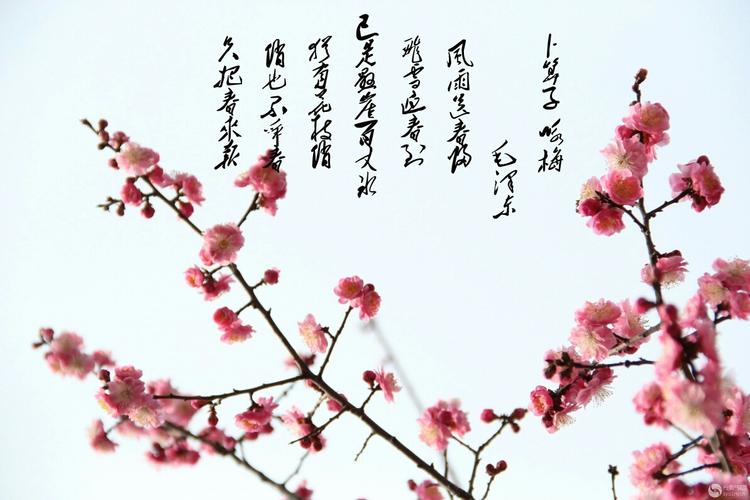 卜算子 咏梅
毛澤东
風雨送春歸
飛雪迎春到
已是懸崖百丈冰
猶有花枝俏
俏也不爭春
只把春來報